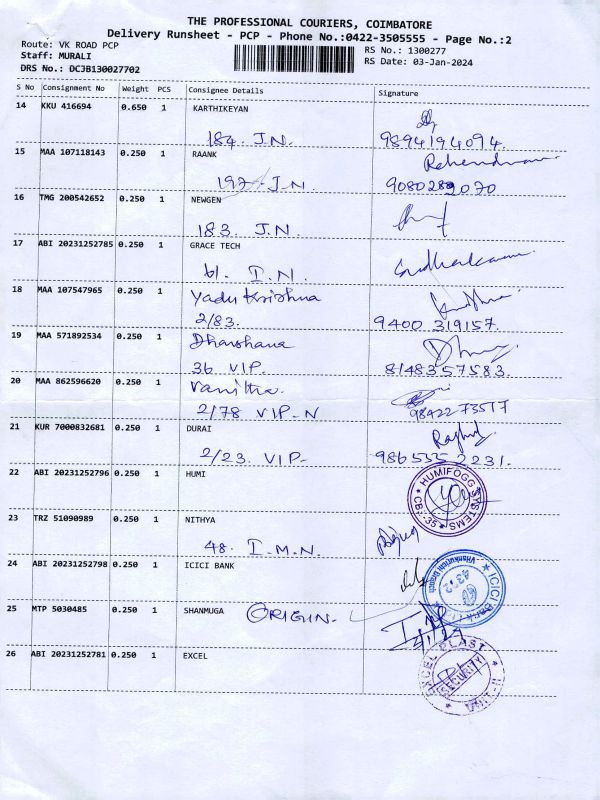 THE PROFESSIONAL COURIERS, COIMBATORE
Delivery Runsheet - PCP - Phone No.:0422-3505555 - Page No.:2
Route: VK ROAD PCP
RS No.: 1300277
Staff: MURALI
RS Date: 03-Jan-2024
DRS No.: DCJB130027702
S No Consignment No Weight PCS Consignee Details Signature
14 KKU 416694 0.650 1 KARTHIKEYAN
184. J.N. 9894194094.
15 MAA 107118143 0.250 1 RAANK
197. J.N. 9080282070
16 TMG 200542652 0.250 1 NEWGEN
183. J.N.
17 ABI 20231252785 0.250 1 GRACE TECH
61. I.N.
18 MAA 107547965 0.250 1 Yadu Krishna
2/83. 9400 319157.
19 MAA 571892534 0.250 1 Dharshana
36 VIP. 8148357583.
20 MAA 862596620 0.250 1 Vanitha.
2/78 VIP-N 98422 73517
21 KUR 7000832681 0.250 1 DURAI
2/23. VIP- 986555 2231.
22 ABI 20231252796 0.250 1 HUMI
HUMIFOGG SYSTEMS
CBE-35
23 TRZ 51090989 0.250 1 NITHYA
48. I.M.N.
24 ABI 20231252798 0.250 1 ICICI BANK
ICICI Bank
4313
25 MTP 5030485 0.250 1 SHANMUGA ORIGIN.
4/1/24
26 ABI 20231252781 0.250 1 EXCEL
EXCEL PLAST
SECURITY
UNIT-II